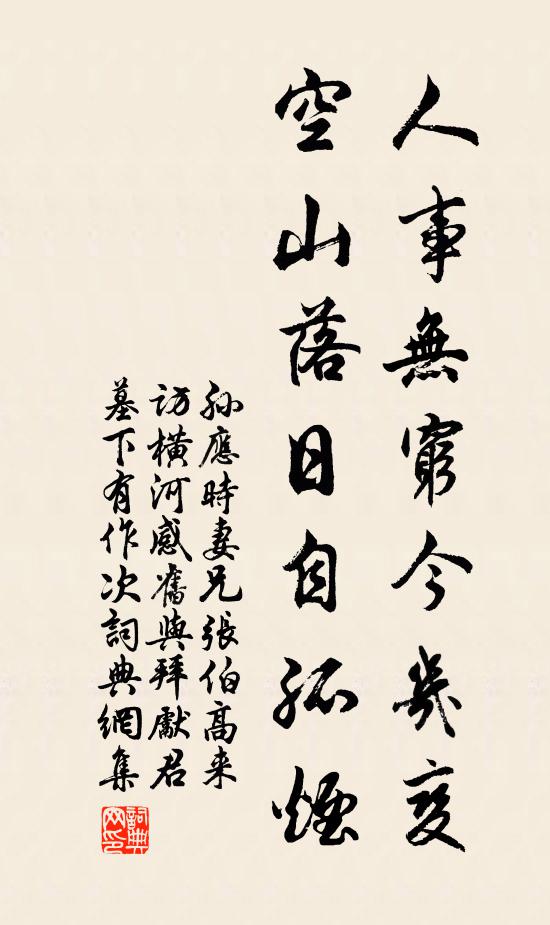 人事無窮今幾变
空山落日自孤煙
孙應時妻兄張伯高来
訪橫河感舊與拜獻君
墓下有作次詞典網集
詞典
网印